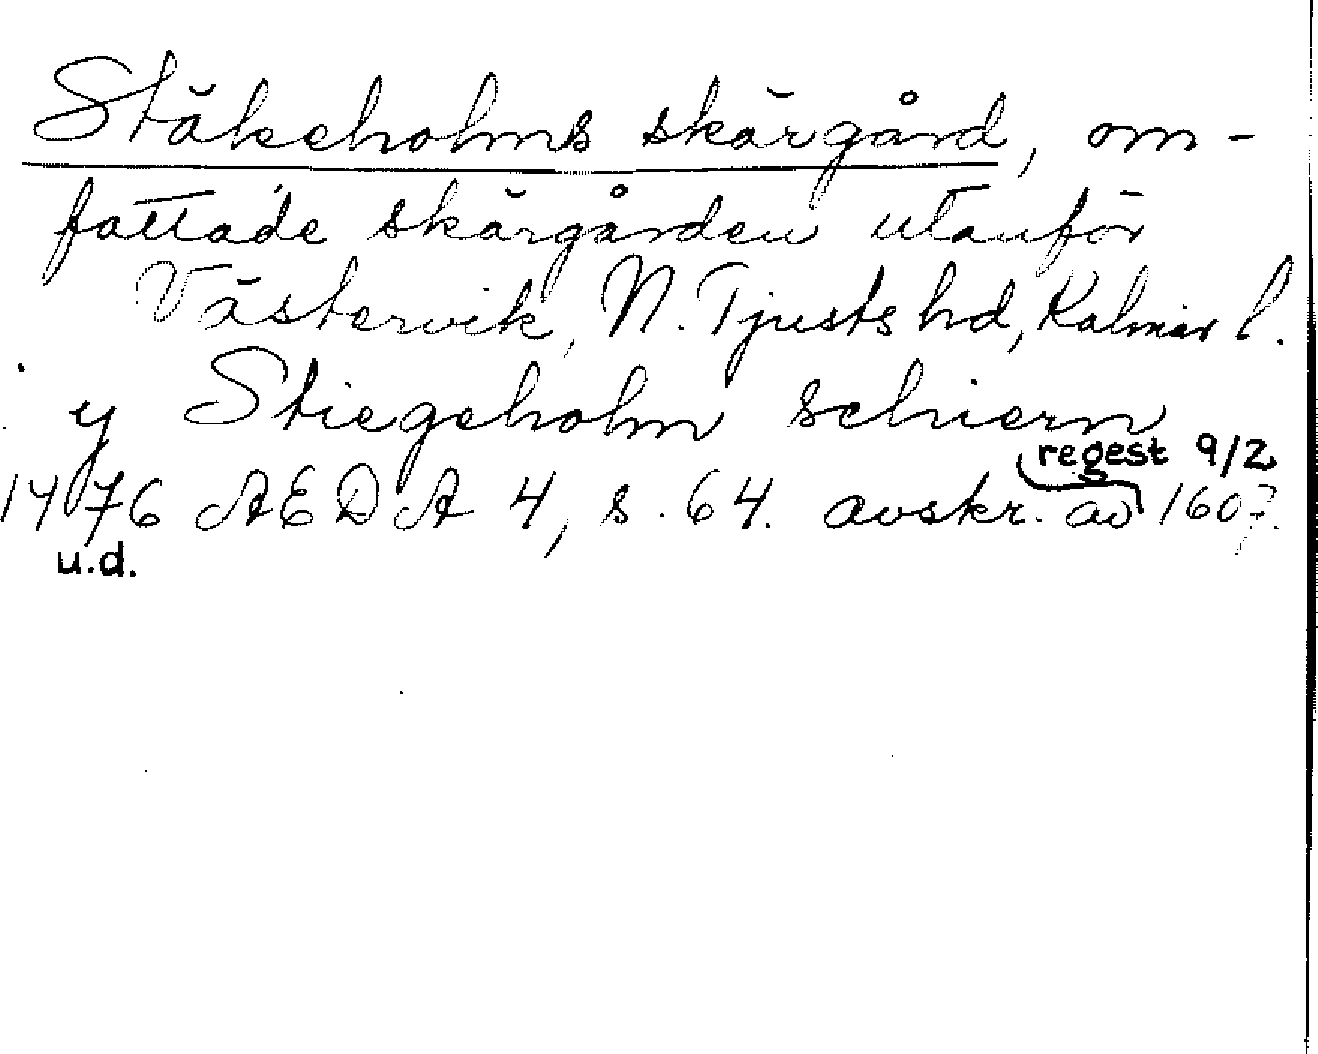 Stäkeholms skärgård, om-
fattade skärgården utanför
Västervik, N. Tjusts hd, Kalmar l.
y Stiegeholm schiern
regest 9/2
1476 AEDA 4, s. 64. avskr. av 1607.
u.d.